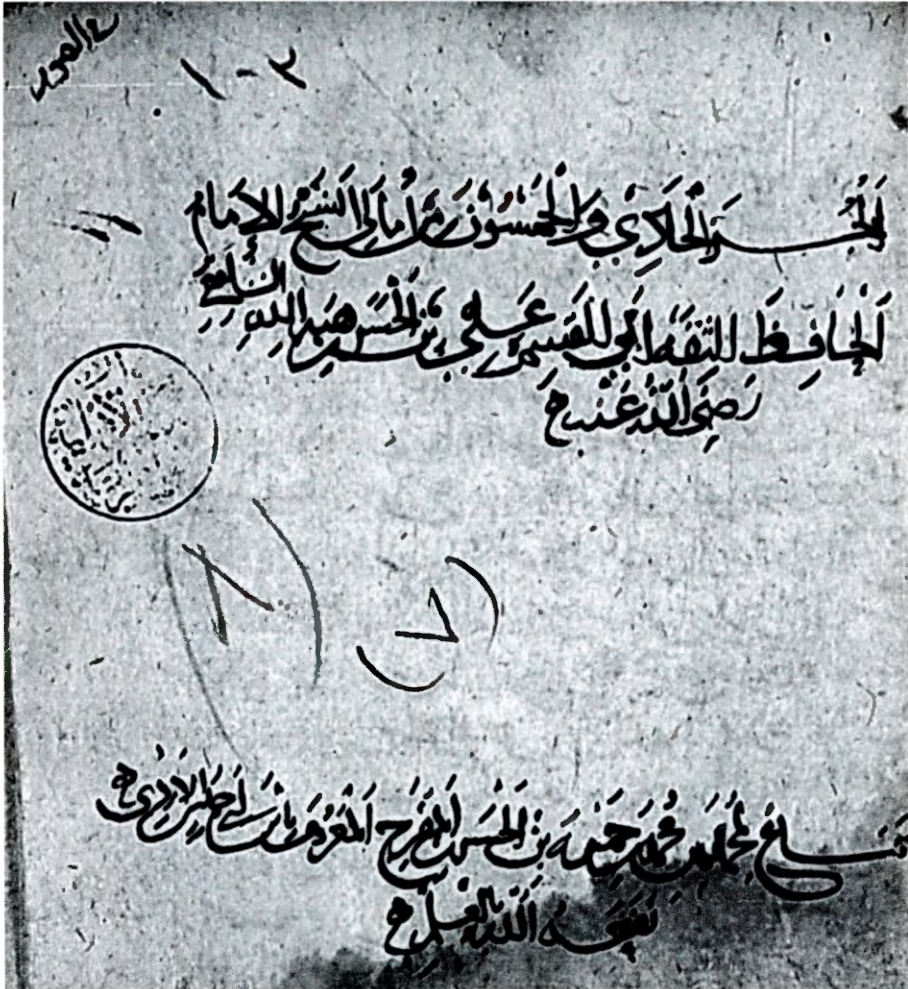 ٣ - ١
الجزء الحادي والخمسون من أمالي الشيخ الإمام
الحافظ الثقة أبي القسم علي بن الحسن بن هبة الله الشافعي
رضي الله عنه
(٧)
(٧)
سماع لمحمد بن حمزة بن الحسن المفرج المعروف بابن أبي
نفعه الله بالعلم